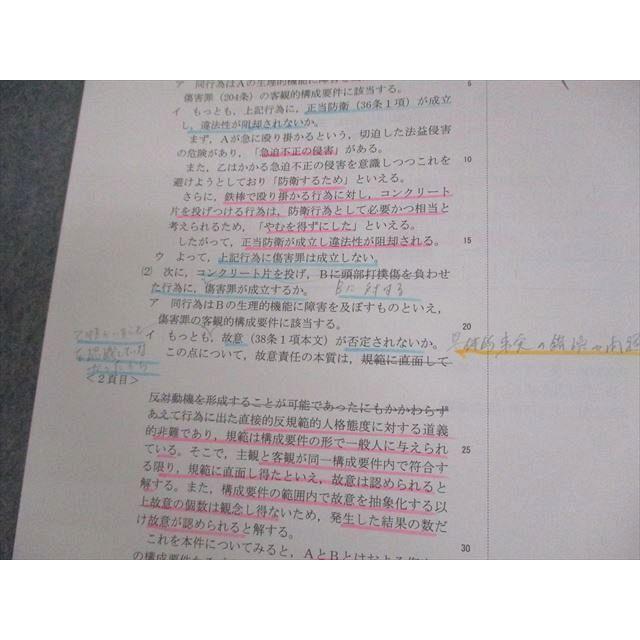 ア 同行為はAの生理的機能に障害を
傷害罪（204条）の客観的構成要件に該当する。
イ もっとも，上記行為に，正当防衛（36条1項）が成立
し，違法性が阻却されないか。
まず，Aが急に殴り掛かるという，切迫した法益侵害
の危険があり，「急迫不正の侵害」がある。
10
また，乙はかかる急迫不正の侵害を意識しつつこれを
避けようとしており「防衛するため」といえる。
さらに，鉄棒で殴り掛かる行為に対し，コンクリート
片を投げつける行為は，防衛行為として必要かつ相当と
考えられるため，「やむを得ずにした」といえる。
したがって，正当防衛が成立し違法性が阻却される。
15
ウ よって，上記行為に傷害罪は成立しない。
⑵ 次に，コンクリート片を投げ，Bに頭部打撲傷を負わせ
た行為に，傷害罪が成立するか。
Bに対する
ア 同行為はBの生理的機能に障害を及ぼすものといえ，
傷害罪の客観的構成要件に該当する。
20
イ もっとも，故意（38条1項本文）が否定されないか。
この点について，故意責任の本質は，規範に直面して
＜2頁目＞
反対動機を形成することが可能であったにもかかわらず
あえて行為に出た直接的反規範的人格態度に対する道義
的非難であり，規範は構成要件の形で一般人に与えられ
25
ている。そこで，主観と客観が同一構成要件内で符合す
る限り，規範に直面し得たといえ，故意は認められると
解する。また，構成要件の範囲内で故意を抽象化する以
上故意の個数は観念し得ないため，発生した結果の数だ
け故意が認められると解する。
これを本件についてみると，AとBとはおよそ
30
の構成要件